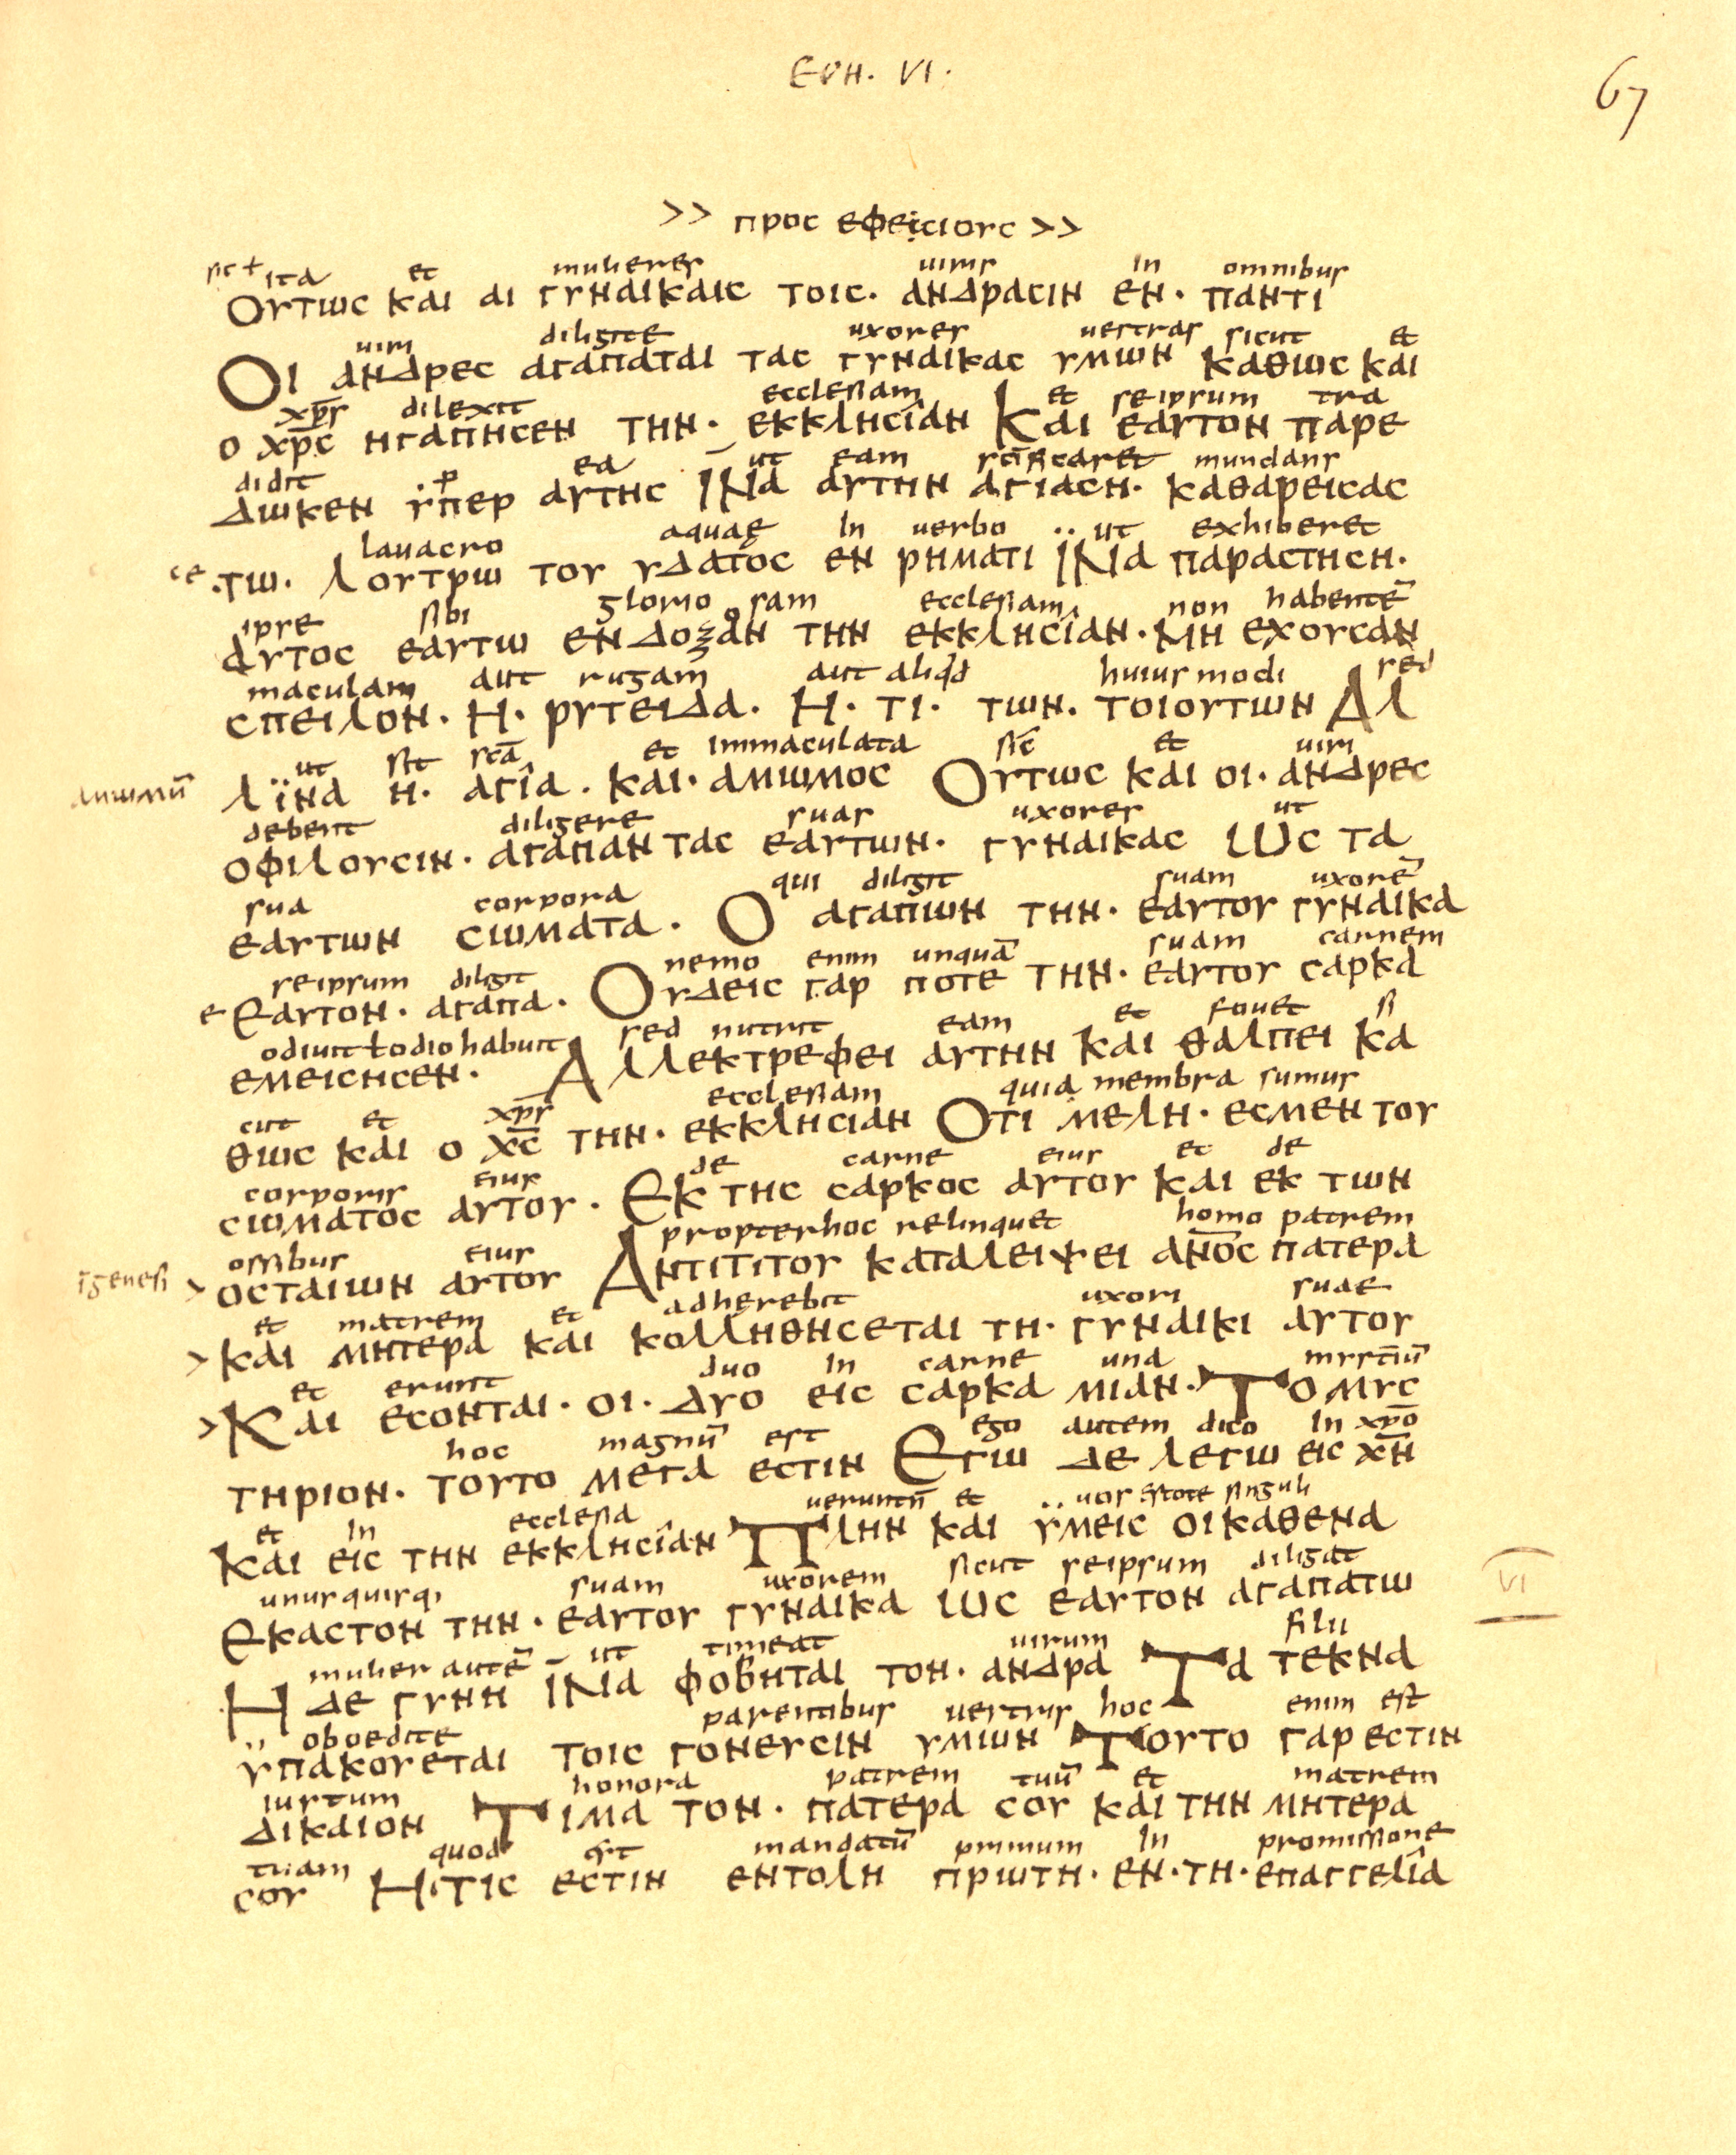 EPH. VI.
67
>> προς εφειςιους >>
sic + ita et mulieres uiris in omnibus
Ουτως και αι γυναικαις τοις· ανδραςιν εν· παντι
uiri diligite uxores uestras sicut et
Οι ανδρες αγαπαται τας γυναικας υμων καθως και
xp̅s dilexit ecclesiam et seipsum tra
ο χρ̅ς ηγαπηςεν την· εκκληςιαν Και εαυτον παρε
didit p ea ut eam sc̅ificaret mundans
δωκεν υπερ αυτης Ινα αυτην αγιαςη· καθαρειςας
lauacro aquae in uerbo ut exhiberet
ce ·τω· Λουτρω του υδατος εν ρηματι Ινα παραςτηςη·
ipse sibi glorio sam ecclesiam non habente̅
αυτος εαυτω ενδοξαν την εκκληςιαν· Μη εχουςαν
maculam aut rugam aut aliqd huius modi sed
ςπειλον· Η· ρυτειδα· Η· τι· των· τοιουτων Αλ
ut sit sc̅a et immaculata sic̅ et uiri
αμωμυ̅ λϊνα η· αγια· και· αμωμος Ουτως και οι· ανδρες
debent diligere suas uxores ut
οφιλουςιν· αγαπαν τας εαυτων· γυναικας Ως τα
sua corpora qui diligit suam uxore̅
εαυτων ςωματα· Ο αγαπων την· εαυτου γυναικα
seipsum diligit nemo enim unqua̅ suam carnem
e Εαυτον· αγαπα· Ουδεις γαρ ποτε την· εαυτου ςαρκα
odiunt ł odio habunt sed nutrit eam et fouet si
εμειςηςεν· Αλλεκτρεφει αυτην και θαλπει κα
cut et xp̅s ecclesiam quia membra sumus
θως και ο χ̅ς την· εκκληςιαν Οτι μελη· εςμεν του
corporis eius de carne eius et de
ςωματος αυτου· Εκ της ςαρκος αυτου και εκ των
ossibus eius propterhoc relinquet homo patrem
i̅ genesi > οςταιων αυτου Αντιτιτου καταλειψει αν̅ος πατερα
et matrem et adherebit uxori suae
> και μητερα και κολληθηςεται τη· γυναικι αυτου
et erunt duo in carne una mysti̅u̅
> Και εςονται· οι· δυο εις ςαρκα μιαν· Το μυς
hoc magnu̅ est ego autem dico in xp̅o
τηριον· τουτο μεγα εςτιν Εγω δε λεγω εις χ̅ν
et in ecclesia ueruntu̅ et uos estote singuli
και εις την εκκληςιαν Πλην και ϋμεις οι καθενα
unusquisqꝫ suam uxorem sicut seipsum diligat
Εκαςτον την· εαυτου γυναικα Ως εαυτον αγαπατω
VI
mulier aute̅ ut timeat uirum filii
Η δε γυνη Ινα φοβηται τον· ανδρα Τα τεκνα
oboedite parentibus uestris hoc enim est
ϋπακουεται τοις γονευςιν υμων Τουτο γαρ εςτιν
iustum honora patrem tuu̅ et matrem
δικαιον Τιμα τον· πατερα ςου και την μητερα
tuam quod est mandatu̅ primum in promissione
ςου Η·τις εςτιν εντολη πρωτη· εν·τη·επαγγελια